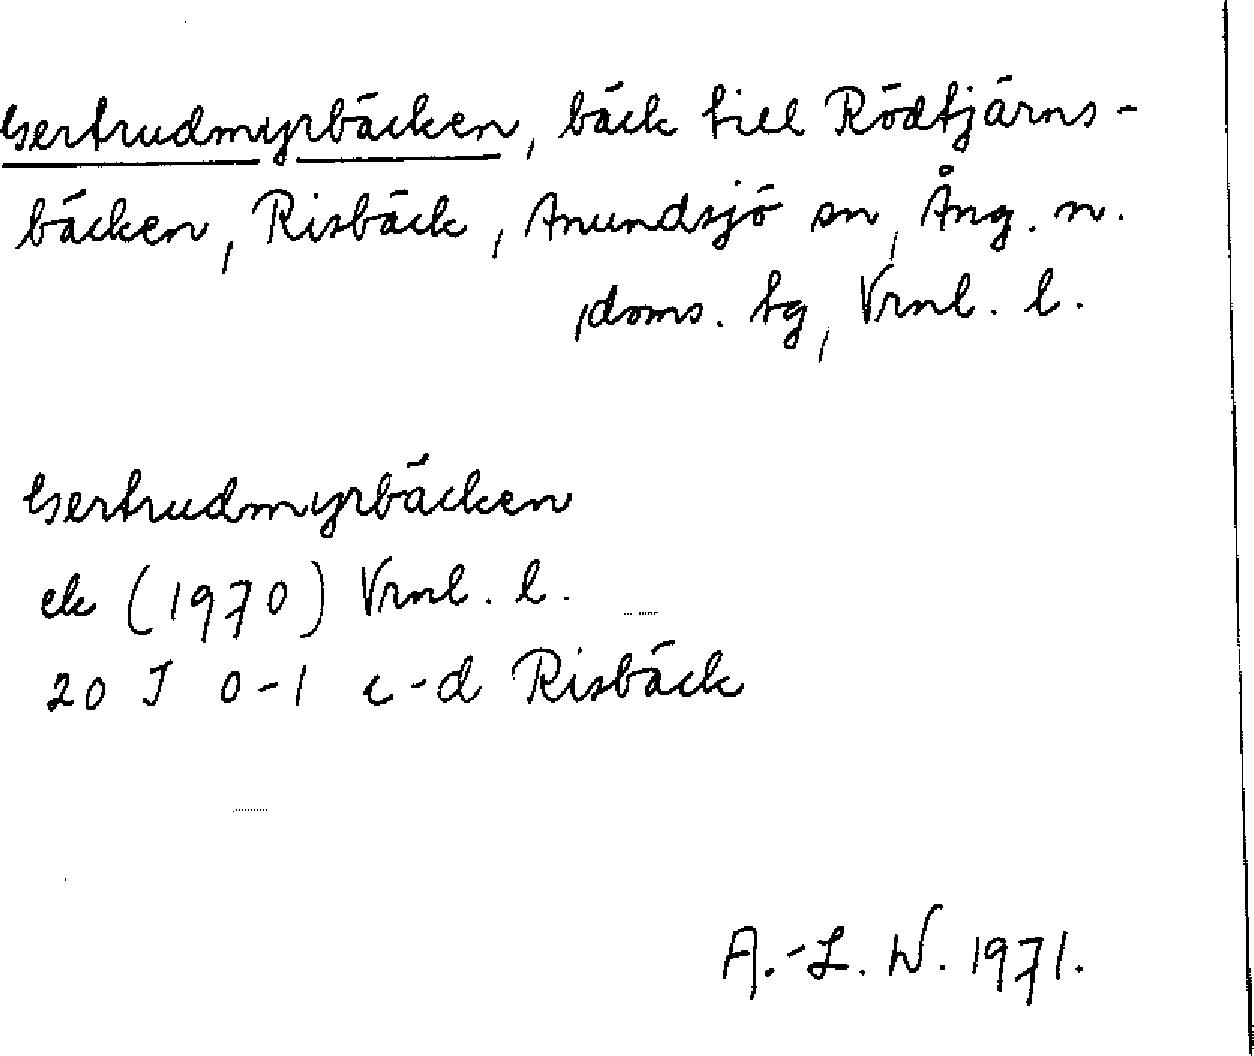 Gertrudmyrbäcken, bäck till Rödtjärns-
bäcken, Risbäck, Anundsjö sn, Ång. n.
doms. tg, Vrnl. l.
Gertrudmyrbäcken
ek (1970) Vrnl. l.
20 J 0-1 c-d Risbäck
A.-L. W. 1971.